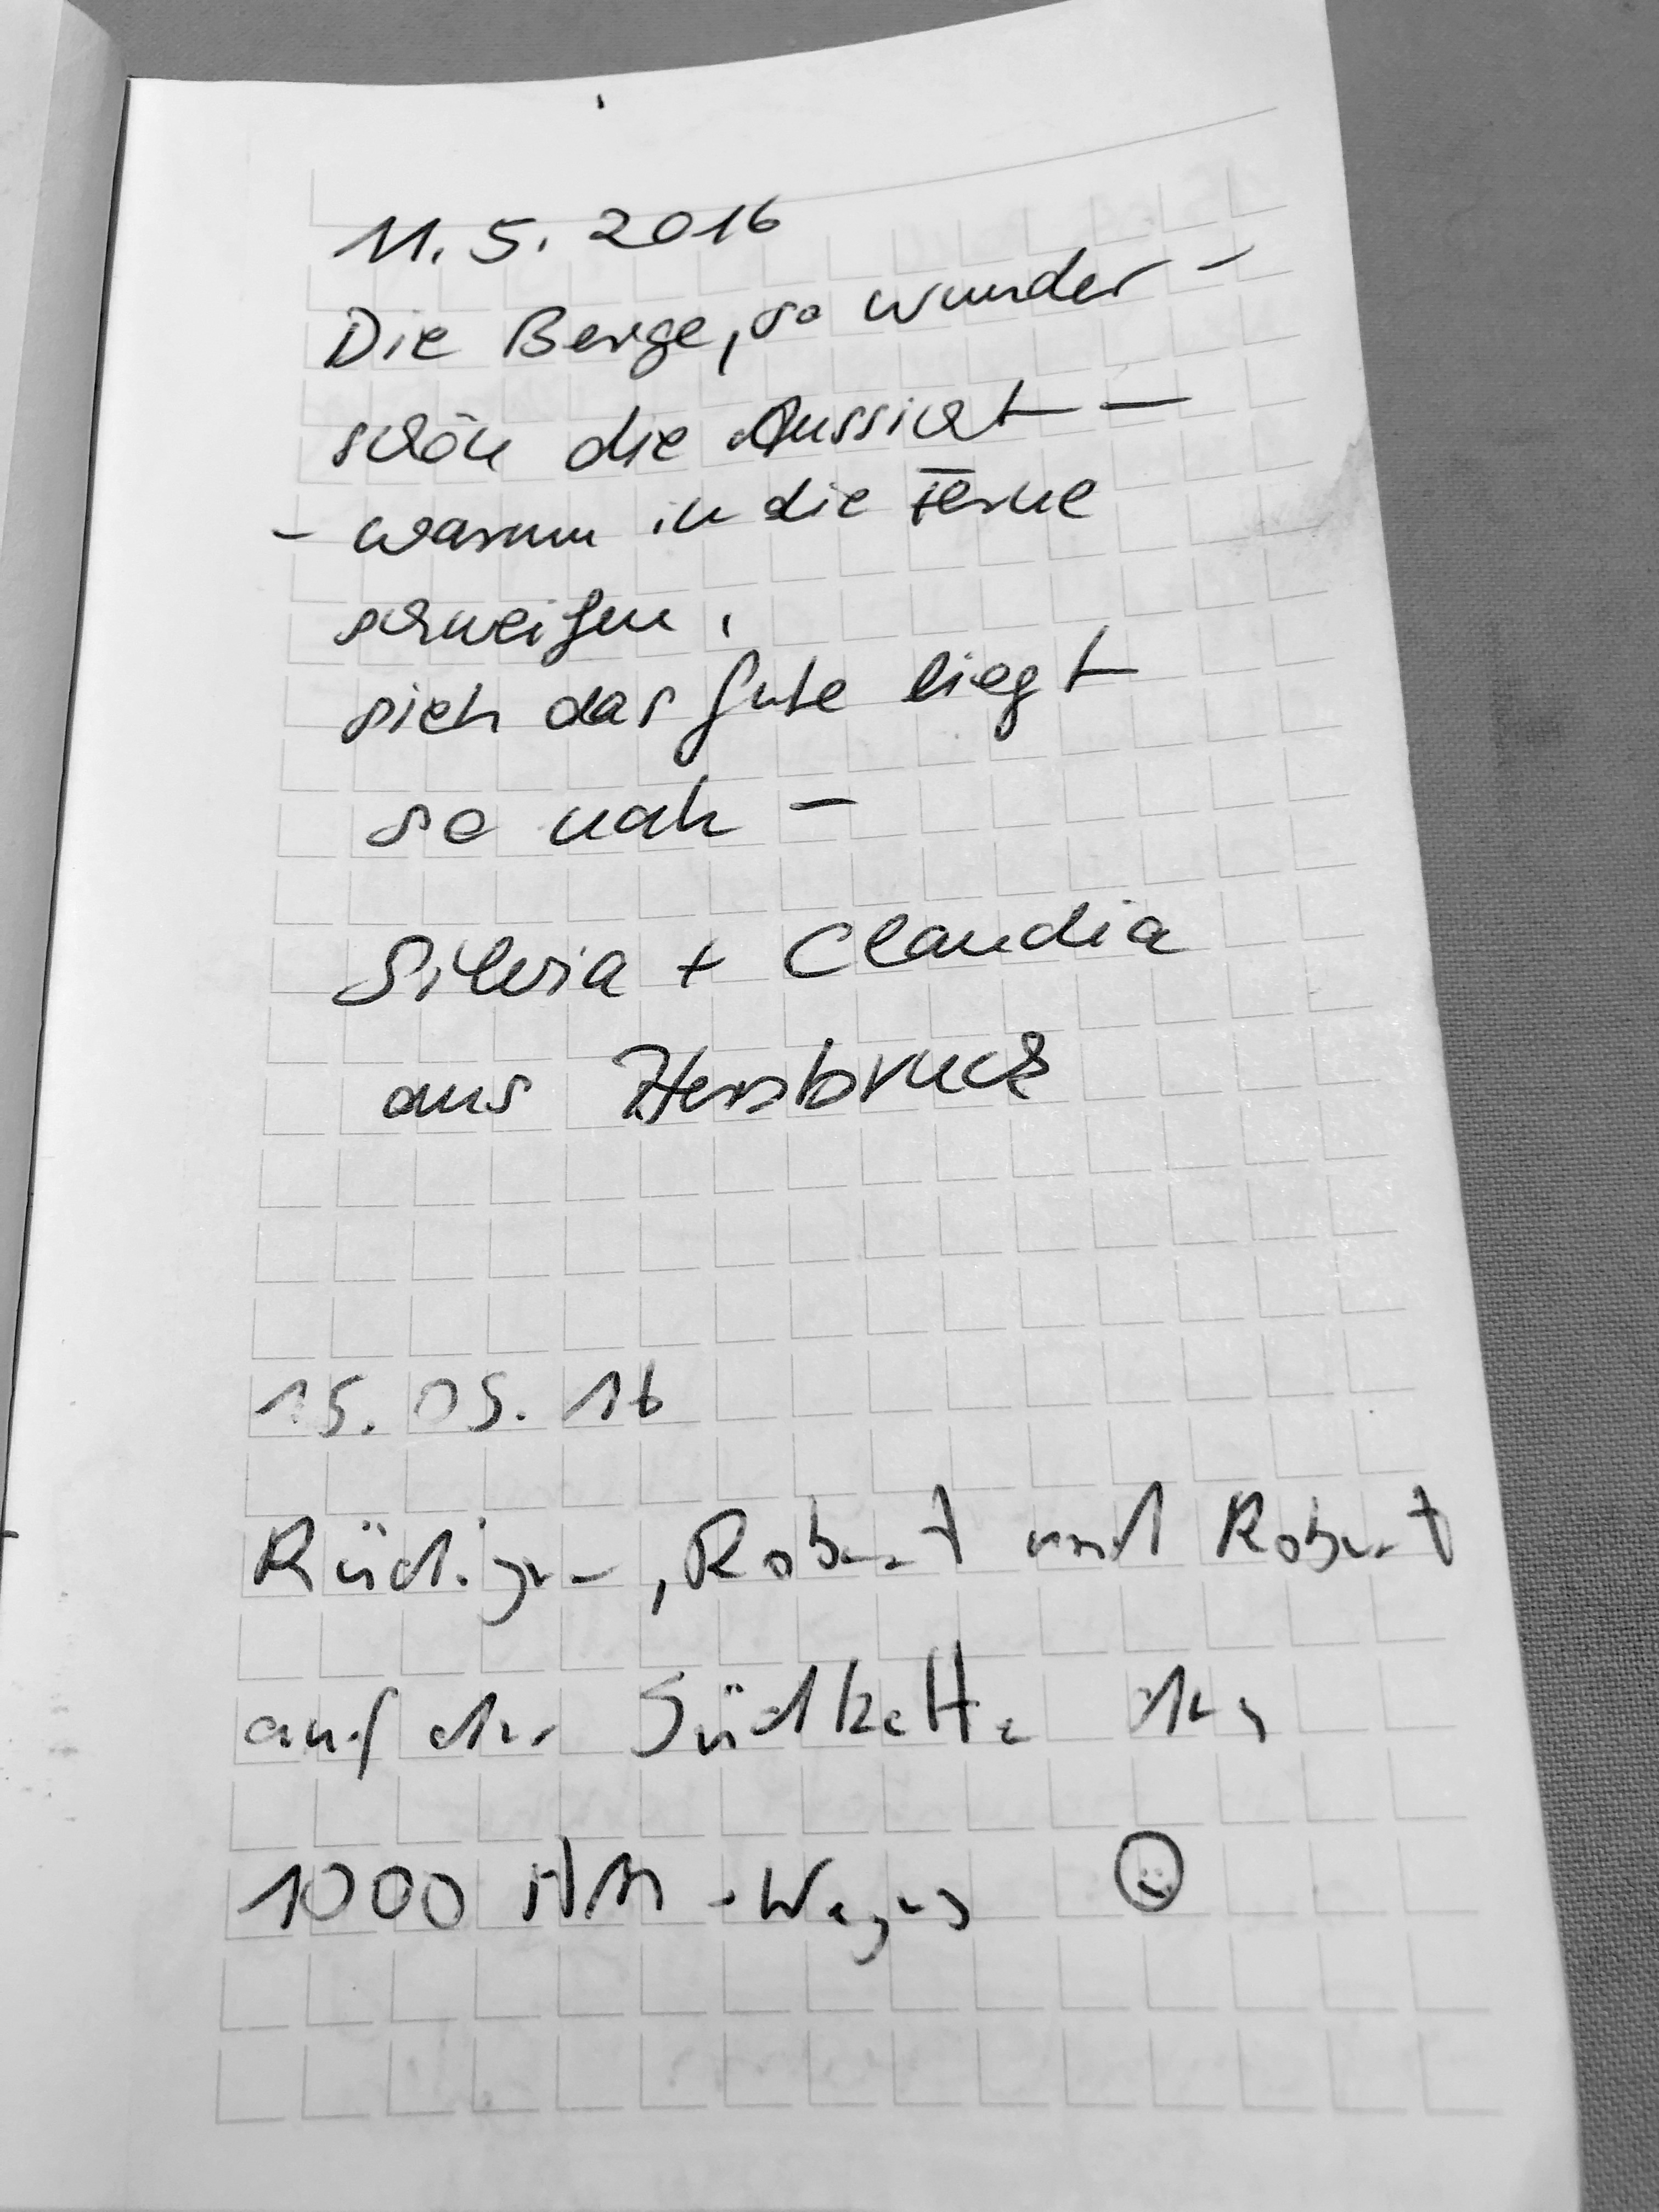 11. 5. 2016
Die Berge, so wunder-
schön die Aussicht —
- warum in die Ferne
schweifen,
sieh das Gute liegt
so nah -
Silvia + Claudia
aus Hersbruck
15.05.16
Rüdiger, Robert und Robert
auf der Südkette des
1000 HM-Weges